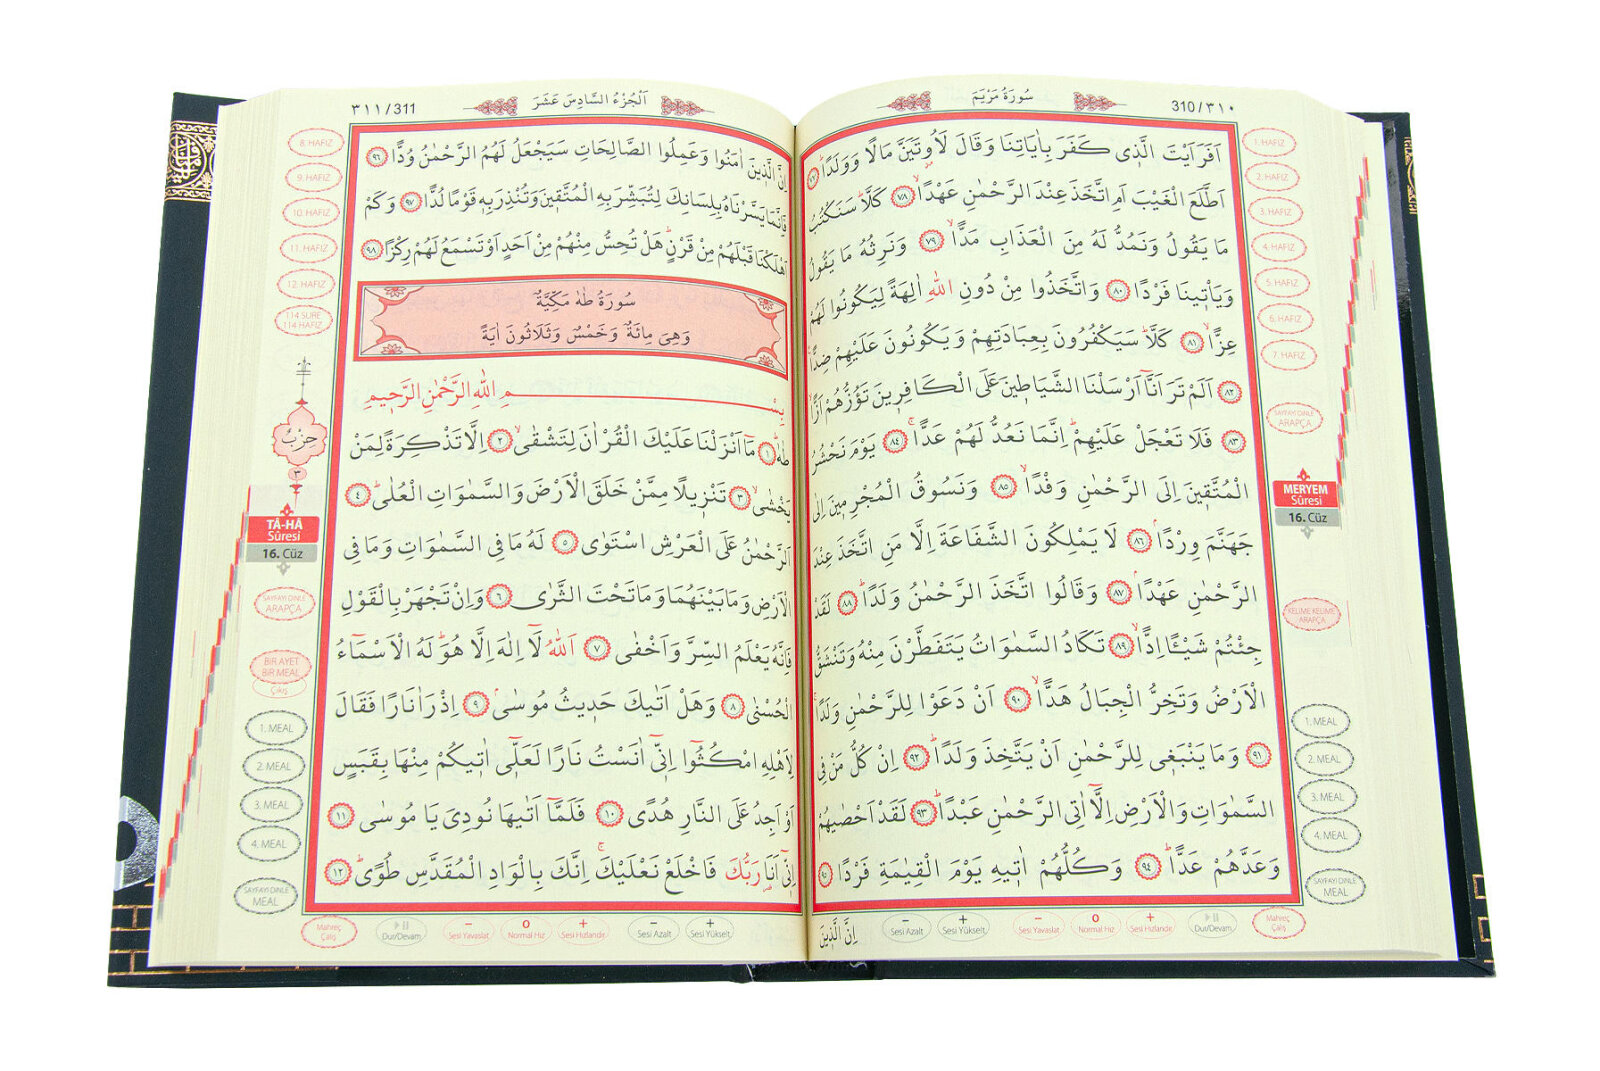 310/٣١٠
سُورَةُ مَرْيَمَ
اَفَرَاَيْتَ الَّذٖى كَفَرَ بِاٰيَاتِنَا وَقَالَ لَاُوتَيَنَّ مَالًا وَوَلَدًاۜ ﴿٧٧﴾
اَطَّلَعَ الْغَيْبَ اَمِ اتَّخَذَ عِنْدَ الرَّحْمٰنِ عَهْدًاۙ ﴿٧٨﴾ كَلَّاۜ سَنَكْتُبُ
مَا يَقُولُ وَنَمُدُّ لَهُ مِنَ الْعَذَابِ مَدًّاۙ ﴿٧٩﴾ وَنَرِثُهُ مَا يَقُولُ
وَيَاْتٖينَا فَرْدًا ﴿٨٠﴾ وَاتَّخَذُوا مِنْ دُونِ اللّٰهِ اٰلِهَةً لِيَكُونُوا لَهُمْ
عِزًّاۙ ﴿٨١﴾ كَلَّاۜ سَيَكْفُرُونَ بِعِبَادَتِهِمْ وَيَكُونُونَ عَلَيْهِمْ ضِدًّا۟
﴿٨٢﴾ اَلَمْ تَرَ اَنَّٓا اَرْسَلْنَا الشَّيَاطٖينَ عَلَى الْكَافِرٖينَ تَؤُزُّهُمْ اَزًّاۙ
﴿٨٣﴾ فَلَا تَعْجَلْ عَلَيْهِمْۜ اِنَّمَا نَعُدُّ لَهُمْ عَدًّاۚ ﴿٨٤﴾ يَوْمَ نَحْشُرُ
الْمُتَّقٖينَ اِلَى الرَّحْمٰنِ وَفْدًاۙ ﴿٨٥﴾ وَنَسُوقُ الْمُجْرِمٖينَ اِلٰى
جَهَنَّمَ وِرْدًاۢ ﴿٨٦﴾ لَا يَمْلِكُونَ الشَّفَاعَةَ اِلَّا مَنِ اتَّخَذَ عِنْدَ
الرَّحْمٰنِ عَهْدًاۢ ﴿٨٧﴾ وَقَالُوا اتَّخَذَ الرَّحْمٰنُ وَلَدًاۜ ﴿٨٨﴾ لَقَدْ
جِئْتُمْ شَيْـًٔا اِدًّاۙ ﴿٨٩﴾ تَكَادُ السَّمٰوَاتُ يَتَفَطَّرْنَ مِنْهُ وَتَنْشَقُّ
الْاَرْضُ وَتَخِرُّ الْجِبَالُ هَدًّاۙ ﴿٩٠﴾ اَنْ دَعَوْا لِلرَّحْمٰنِ وَلَدًاۚ
﴿٩١﴾ وَمَا يَنْبَغٖى لِلرَّحْمٰنِ اَنْ يَتَّخِذَ وَلَدًاۜ ﴿٩٢﴾ اِنْ كُلُّ مَنْ فِى
السَّمٰوَاتِ وَالْاَرْضِ اِلَّٓا اٰتِى الرَّحْمٰنِ عَبْدًاۜ ﴿٩٣﴾ لَقَدْ اَحْصٰيهُمْ
وَعَدَّهُمْ عَدًّاۜ ﴿٩٤﴾ وَكُلُّهُمْ اٰتٖيهِ يَوْمَ الْقِيٰمَةِ فَرْدًا ﴿٩٥﴾
اِنَّ الَّذٖينَ
1. HAFIZ
2. HAFIZ
3. HAFIZ
4. HAFIZ
5. HAFIZ
6. HAFIZ
7. HAFIZ
SAYFAYI DİNLE
ARAPÇA
MERYEM
Sûresi
16. Cüz
KELİME KELİME
ARAPÇA
1. MEAL
2. MEAL
3. MEAL
4. MEAL
SAYFAYI DİNLE
MEAL
− Sesi Azalt
+ Sesi Yükselt
− Sesi Yavaşlat
o Normal Hız
+ Sesi Hızlandır
Dur/Devam
Mahreç
Çalış
٣١١/311
اَلْجُزْءُ السَّادِسَ عَشَرَ
اِنَّ الَّذٖينَ اٰمَنُوا وَعَمِلُوا الصَّالِحَاتِ سَيَجْعَلُ لَهُمُ الرَّحْمٰنُ وُدًّا ﴿٩٦﴾
فَاِنَّمَا يَسَّرْنَاهُ بِلِسَانِكَ لِتُبَشِّرَ بِهِ الْمُتَّقٖينَ وَتُنْذِرَ بِهٖ قَوْمًا لُدًّا ﴿٩٧﴾ وَكَمْ
اَهْلَكْنَا قَبْلَهُمْ مِنْ قَرْنٍۜ هَلْ تُحِسُّ مِنْهُمْ مِنْ اَحَدٍ اَوْ تَسْمَعُ لَهُمْ رِكْزًا ﴿٩٨﴾
سُورَةُ طٰهٰ مَكِّيَّةٌ
وَهِىَ مِائَةٌ وَخَمْسٌ وَثَلَاثُونَ اٰيَةً
بِسْمِ اللّٰهِ الرَّحْمٰنِ الرَّحٖيمِ
طٰهٰۜ ﴿١﴾ مَٓا اَنْزَلْنَا عَلَيْكَ الْقُرْاٰنَ لِتَشْقٰىۙ ﴿٢﴾ اِلَّا تَذْكِرَةً لِمَنْ
يَخْشٰىۙ ﴿٣﴾ تَنْزٖيلًا مِمَّنْ خَلَقَ الْاَرْضَ وَالسَّمٰوَاتِ الْعُلٰىۜ ﴿٤﴾
اَلرَّحْمٰنُ عَلَى الْعَرْشِ اسْتَوٰى ﴿٥﴾ لَهُ مَا فِى السَّمٰوَاتِ وَمَا فِى
الْاَرْضِ وَمَا بَيْنَهُمَا وَمَا تَحْتَ الثَّرٰى ﴿٦﴾ وَاِنْ تَجْهَرْ بِالْقَوْلِ
فَاِنَّهُ يَعْلَمُ السِّرَّ وَاَخْفٰى ﴿٧﴾ اَللّٰهُ لَٓا اِلٰهَ اِلَّا هُوَۜ لَهُ الْاَسْمَٓاءُ
الْحُسْنٰى ﴿٨﴾ وَهَلْ اَتٰيكَ حَدٖيثُ مُوسٰىۢ ﴿٩﴾ اِذْ رَاٰ نَارًا فَقَالَ
لِاَهْلِهِ امْكُثُٓوا اِنّٖٓى اٰنَسْتُ نَارًا لَعَلّٖٓى اٰتٖيكُمْ مِنْهَا بِقَبَسٍ
اَوْ اَجِدُ عَلَى النَّارِ هُدًى ﴿١٠﴾ فَلَمَّٓا اَتٰيهَا نُودِىَ يَا مُوسٰى ﴿١١﴾
اِنّٖٓى اَنَا۬ رَبُّكَ فَاخْلَعْ نَعْلَيْكَۚ اِنَّكَ بِالْوَادِ الْمُقَدَّسِ طُوًىۜ ﴿١٢﴾
8. HAFIZ
9. HAFIZ
10. HAFIZ
11. HAFIZ
12. HAFIZ
114 SURE
114 HAFIZ
حِزْبٌ
٣
TÂ-HÂ
Sûresi
16. Cüz
SAYFAYI DİNLE
ARAPÇA
BİR AYET
BİR MEAL
Çıkış
1. MEAL
2. MEAL
3. MEAL
4. MEAL
SAYFAYI DİNLE
MEAL
Mahreç
Çalış
Dur/Devam
− Sesi Yavaşlat
o Normal Hız
+ Sesi Hızlandır
− Sesi Azalt
+ Sesi Yükselt